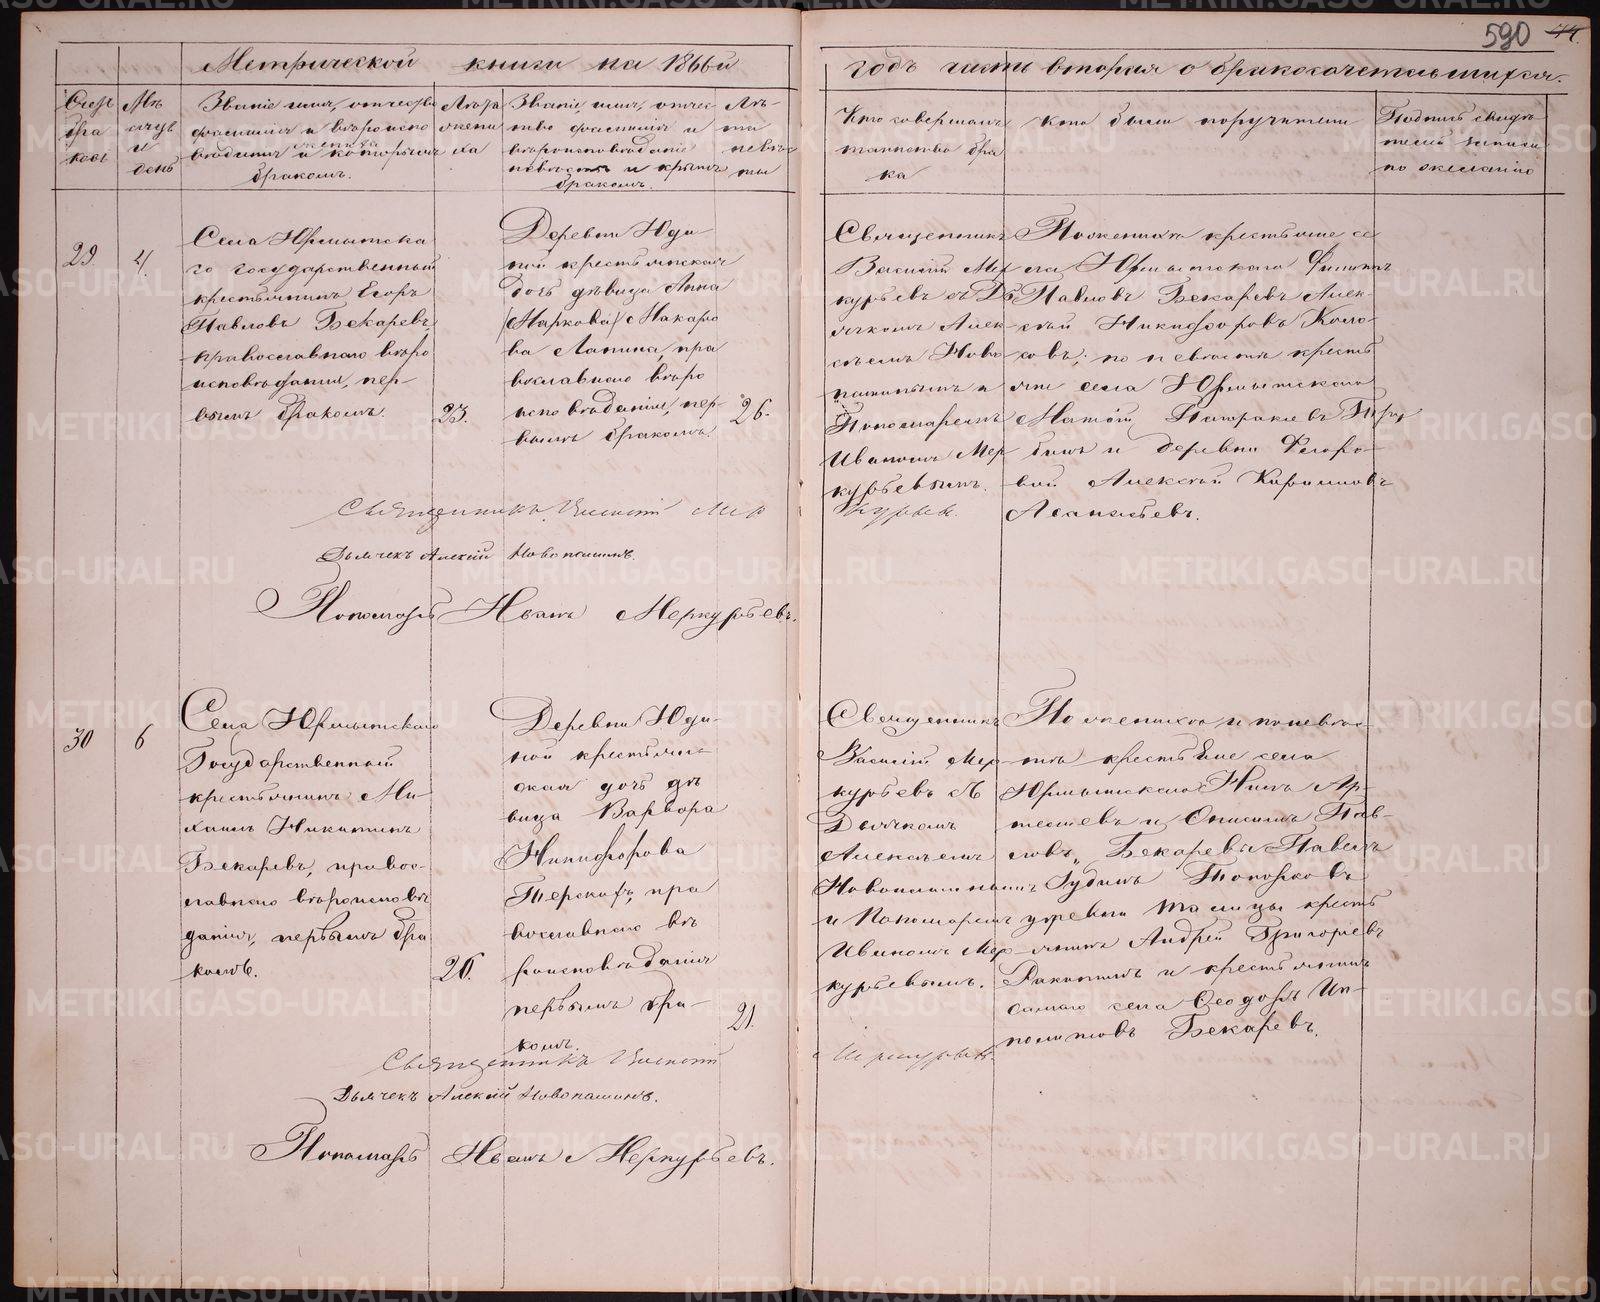 590
Метрической книги на 1866й
годъ часть вторая о бракосочетавшихся.
Счетъ
бра
ковъ
Мѣ
сяцъ
и
день
Званіе имя, отчество
фамилія и вѣроиспо
вѣданіе жениха и которымъ
бракомъ.
Лѣта
жени
ха
Званіе, имя, отчес
тво фамилія и
вѣроисповѣданіе
невѣсты и крымъ
бракомъ.
Лѣ-
та
невѣс
ты
Кто совершалъ
таинство бра
ка
Кто были поручители
Подпись свидѣ
телей записи
по желанію
29.
4.
Села Юрмытска
го государственный
крестьянинъ Егоръ
Павловъ Бекаревъ,
православнаго вѣро
исповѣданія, пер-
вымъ бракомъ.
23.
Деревни Юди
ной крестьянская
дочь дѣвица Анна
(Маркова) Макаро
ва Лапина, пра
вославнаго вѣро
исповѣданія, пер-
вымъ бракомъ.
26.
Священникъ
Василій Мер
курьевъ съ Дь
ячкомъ Алек-
сѣемъ Ново
пашинымъ и
Пономаремъ
Иваномъ Мер
курьевымъ.
По женихѣ крестьяне се
ла Юрмытскаго Филиппъ
Павловъ Бекаревъ Алек-
сѣй Никифоровъ
по невѣстѣ кресть
яне села Юрмытскаго
и деревни Федоро-
вой Алексѣй
Священникъ Василій Мер
курьевъ.
Дьячекъ Алексій Новопашинъ.
Пономарь Иванъ Меркурьевъ.
30
6
Села Юрмытскаго
Государственный
крестьянинъ Ми-
хаилъ Никитинъ
Бекаревъ, правос-
лавнаго вѣроисповѣ
данія, первымъ бра
комъ.
20.
Деревни Юди-
ной крестьян-
ская дочь дѣ
вица Варвара
Никифорова
православнаго вѣ
роисповѣданія
первымъ бра-
комъ.
21.
Священникъ
Василій Мер
курьевъ съ
Дьячкомъ
Алексѣемъ
Новопашинымъ
и Пономаремъ
Иваномъ Мер-
курьевымъ.
По женихѣ и по невѣс-
тѣ крестьяне села
Юрмытскаго Нилъ Ар-
темьевъ и Онисимъ Пав-
ловъ, Бекаревы Павелъ
Топорковъ
деревни Талицы кресть
янинъ Андрей Григорьевъ
Ракитинъ и крестьянинъ
самаго села Ѳеодоръ Ип-
политовъ Бекаревъ.
Священникъ Василій
Меркурьевъ.
Дьячекъ Алексій Новопашинъ.
Пономарь Иванъ Меркурьевъ.
METRIKI.GASO-URAL.RU